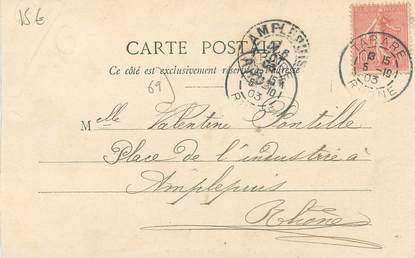 15€
CARTE POSTALE
Ce côté est exclusivement réservé à l'adresse
69
AMPLEPUIS
RHONE
TARARE
13 15
5 -10
03
RHONE
Melle Valentine Pontille
Place de l'industrie à
Amplepuis
Rhône